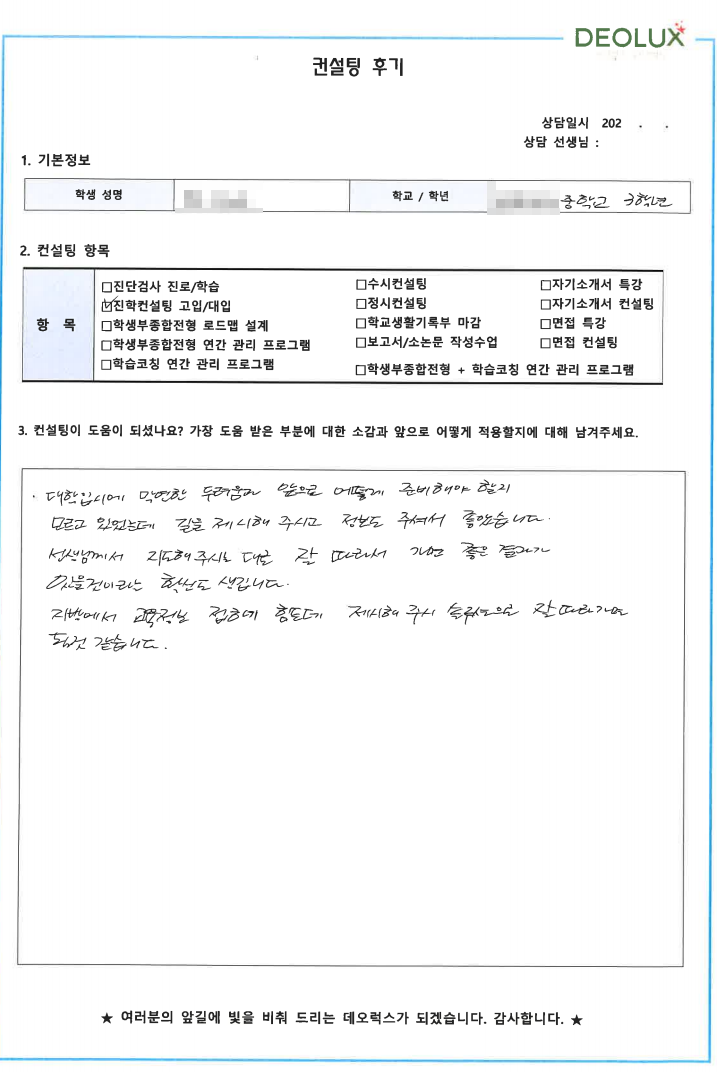 DEOLUX
컨설팅 후기
상담일시 202 . .
상담 선생님 :
1. 기본정보
학생 성명
학교 / 학년
중학교 3학년
2. 컨설팅 항목
항 목
□진단검사 진로/학습 □수시컨설팅 □자기소개서 특강
☑진학컨설팅 고입/대입 □정시컨설팅 □자기소개서 컨설팅
□학생부종합전형 로드맵 설계 □학교생활기록부 마감 □면접 특강
□학생부종합전형 연간 관리 프로그램 □보고서/소논문 작성수업 □면접 컨설팅
□학습코칭 연간 관리 프로그램 □학생부종합전형 + 학습코칭 연간 관리 프로그램
3. 컨설팅이 도움이 되셨나요? 가장 도움 받은 부분에 대한 소감과 앞으로 어떻게 적용할지에 대해 남겨주세요.
· 대학입시에 막연한 두려움과 앞으로 어떻게 준비해야 할지
모르고 있었는데 길을 제시해 주시고 정보도 주셔서 좋았습니다.
선생님께서 지도해주시는 대로 잘 따라서 가면 좋은 결과가
있을것이라는 확신도 생깁니다.
지방에서 교육정보 접하기 힘든데 제시해 주신 솔루션으로 잘 따라가면
될것 같습니다.
★ 여러분의 앞길에 빛을 비춰 드리는 데오럭스가 되겠습니다. 감사합니다. ★